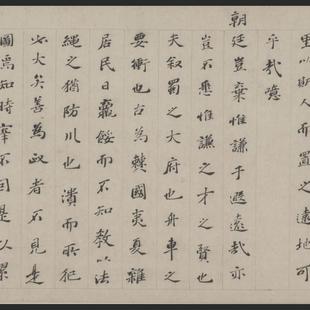 里以斯人而置之遠地可
乎哉噫
朝
廷豈棄惟謙于遐遠哉亦
豈不悉惟謙之才之賢也
夫叙蜀之大府也舟車之
要衝也古為僰國夷夏雜
居民日嚚䜛而不知教以法
繩之猶防川也潰而所犯
必大矣善為政者不見是
圖為知時宰不同是以累